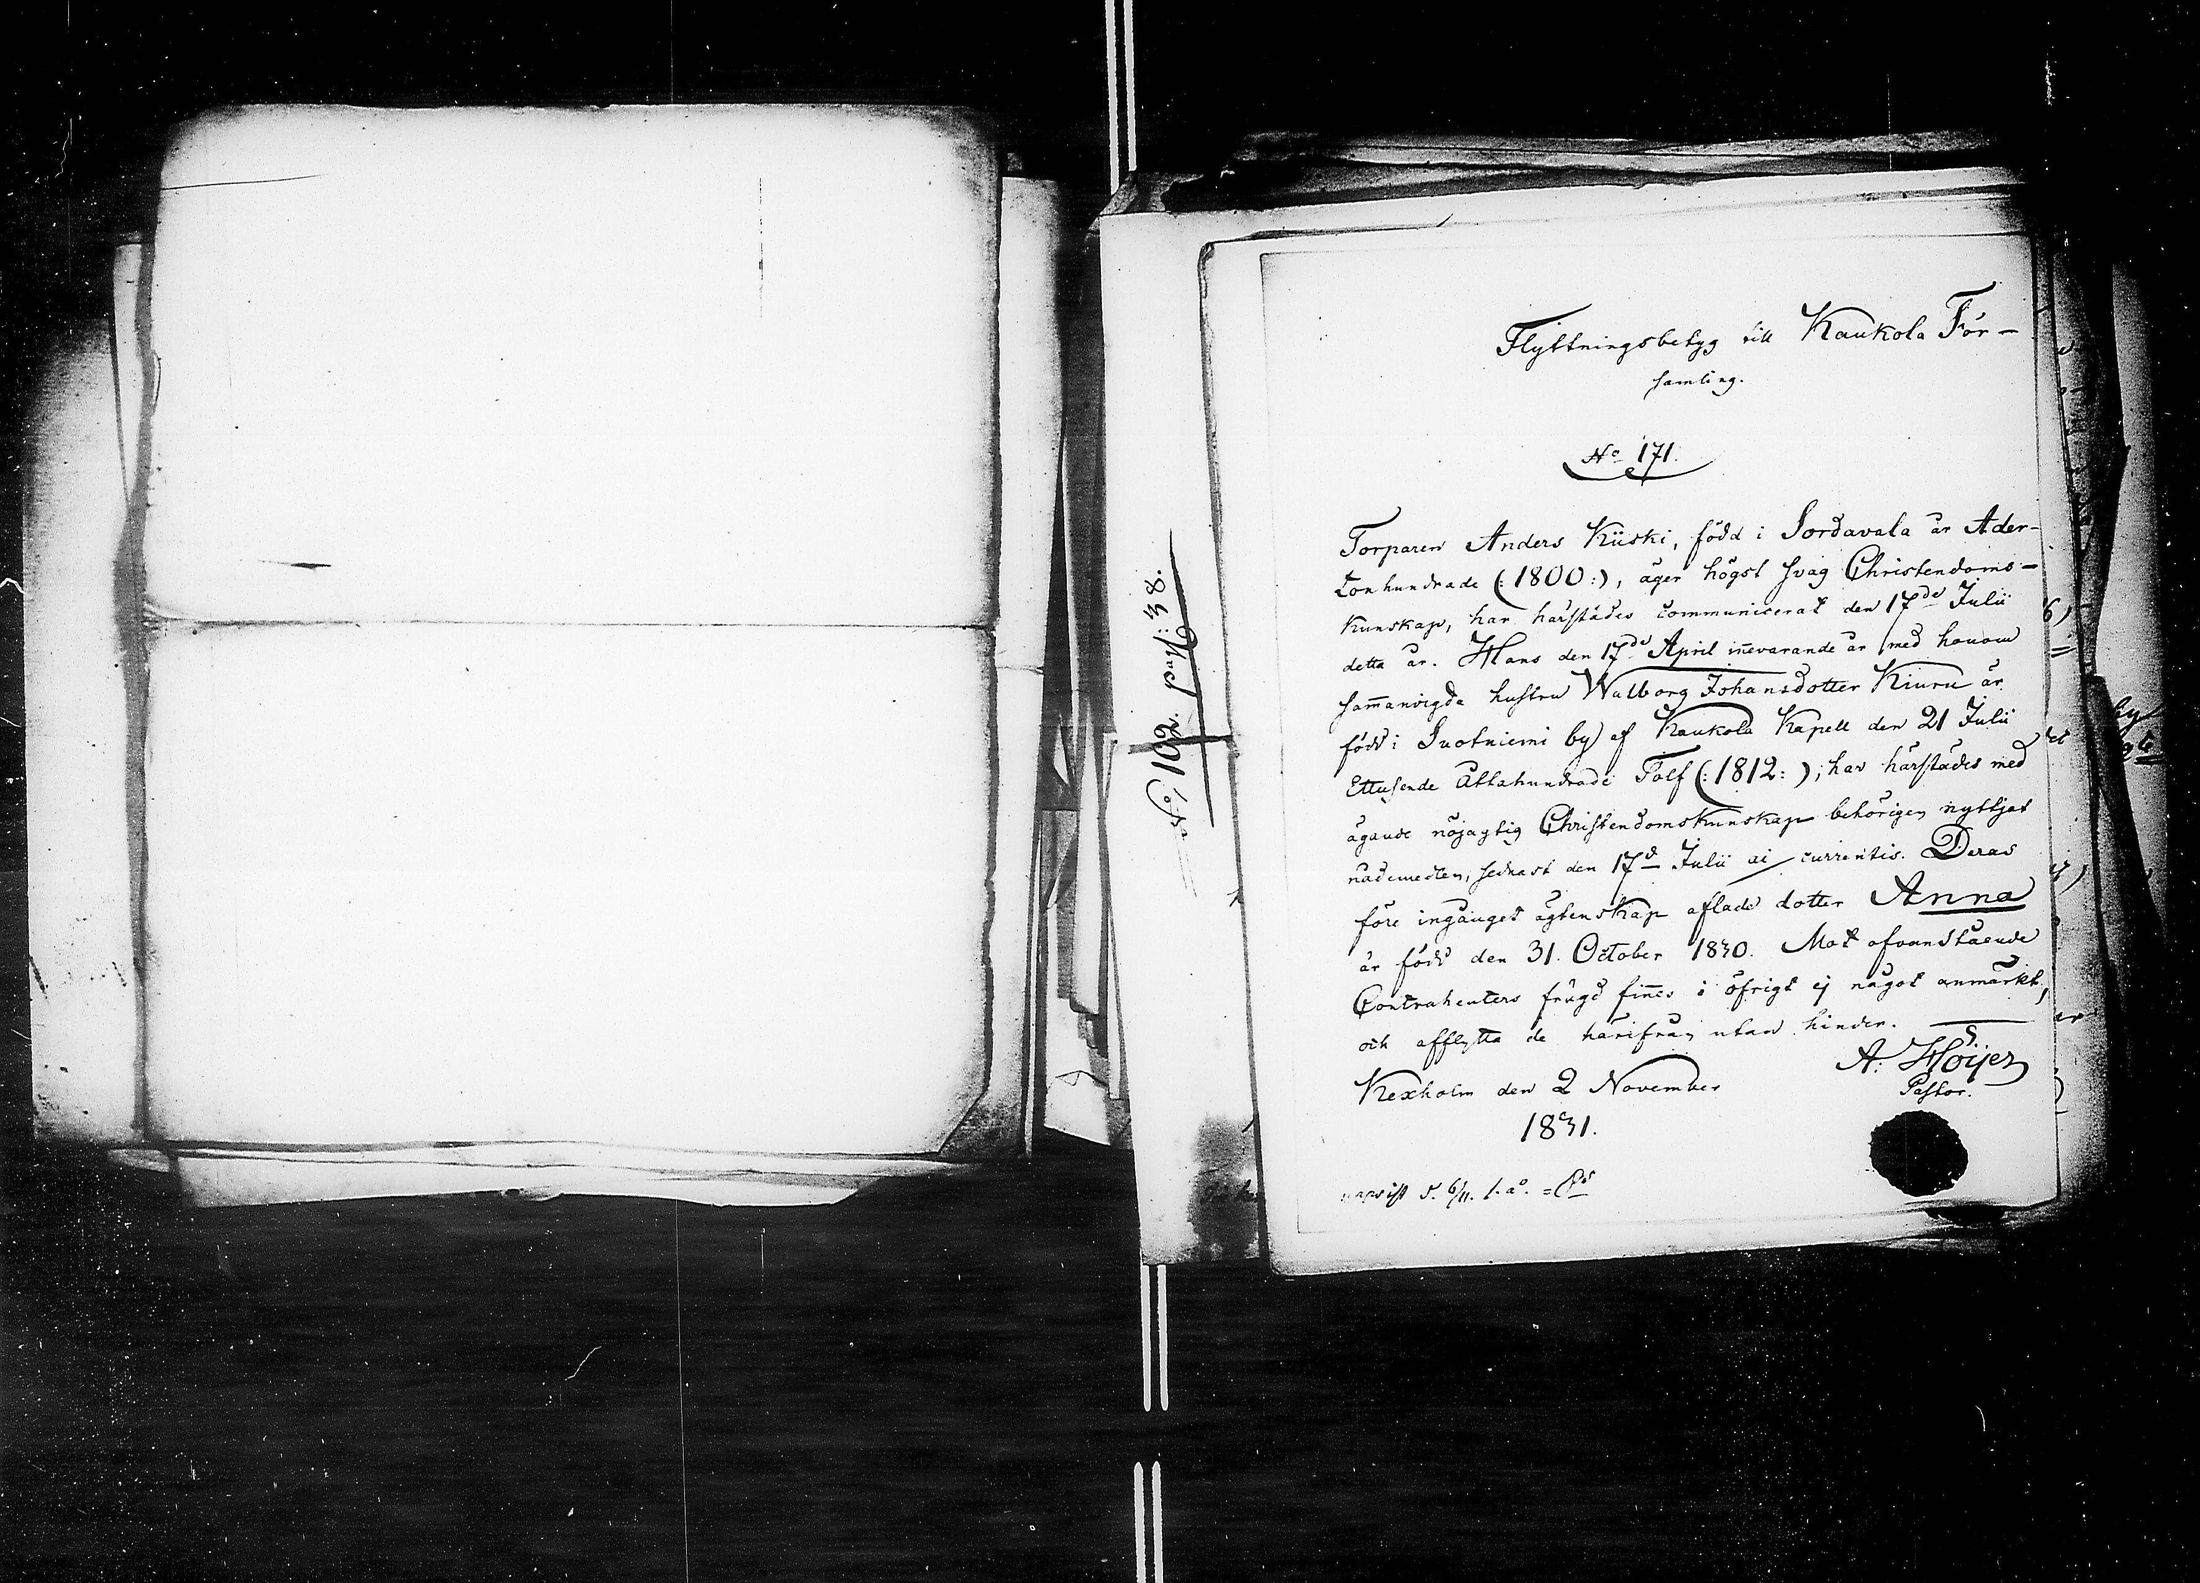 Flyttningsbetyg till Kaukola För-
samling.
No 171.
Torparen Anders Kiiski, född i Sordavala år Ader-
tonhundrade (:1800:), äger högst svag Christendoms-
kunskap, har härstädes communicerat den 17de Julii
detta år. Hans den 17de April inevarande år med honom
samanvigda hustru Walborg Johansdotter Kiuru är
född i Suotniemi by af Kaukola Kapell den 21 Julii
Ettusende Åttahundrade Tolf (:1812:); har härstädes med
ägande nöjagtig Christendomskunskap behörigen nyttjat
nådemedlen, sednast den 17d Julii ai currentis. Deras
före ingånget ägtenskap aflade dotter Anna
är född den 31. October 1830. Mot ofvanstående
Contrahenters frägd fines i öfrigt ej något anmärkt,
och afflytta de härifrån utan hinder.
Kexholm den 2 November
1831.
A: Höijer
Pastor.
d. 6/11. s. ao.
No, 102. pag: 38.